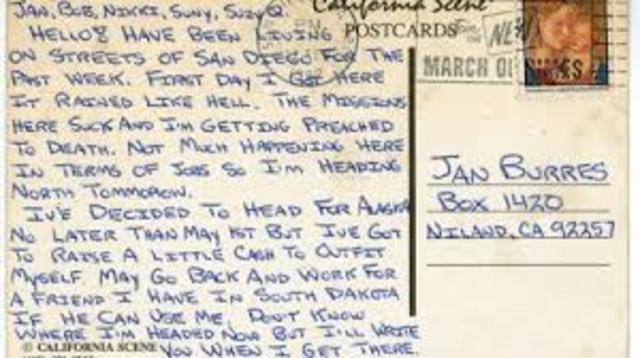 JAN, BOB, NIKKI, SUNY, SUZY Q.
HELLO! HAVE BEEN LIVING
ON STREETS OF SAN DIEGO FOR THE
PAST WEEK. FIRST DAY I GOT HERE
IT RAINED LIKE HELL. THE MISSIONS
HERE SUCK AND I'M GETTING PREACHED
TO DEATH. NOT MUCH HAPPENING HERE
IN TERMS OF JOBS SO I'M HEADING
NORTH TOMMOROW.
IV'E DECIDED TO HEAD FOR ALASKA
NO LATER THAN MAY 1ST BUT I'VE GOT
TO RAISE A LITTLE CASH TO OUTFIT
MYSELF. MAY GO BACK AND WORK FOR
A FRIEND I HAVE IN SOUTH DAKOTA
IF HE CAN USE ME. DON'T KNOW
WHERE I'M HEADED NOW BUT I'LL WRITE
YOU WHEN I GET THERE.
© CALIFORNIA SCENE
"California Scene"
POSTCARDS
MARCH OF DIMES
JAN BURRES
BOX 1420
NILAND, CA 92257